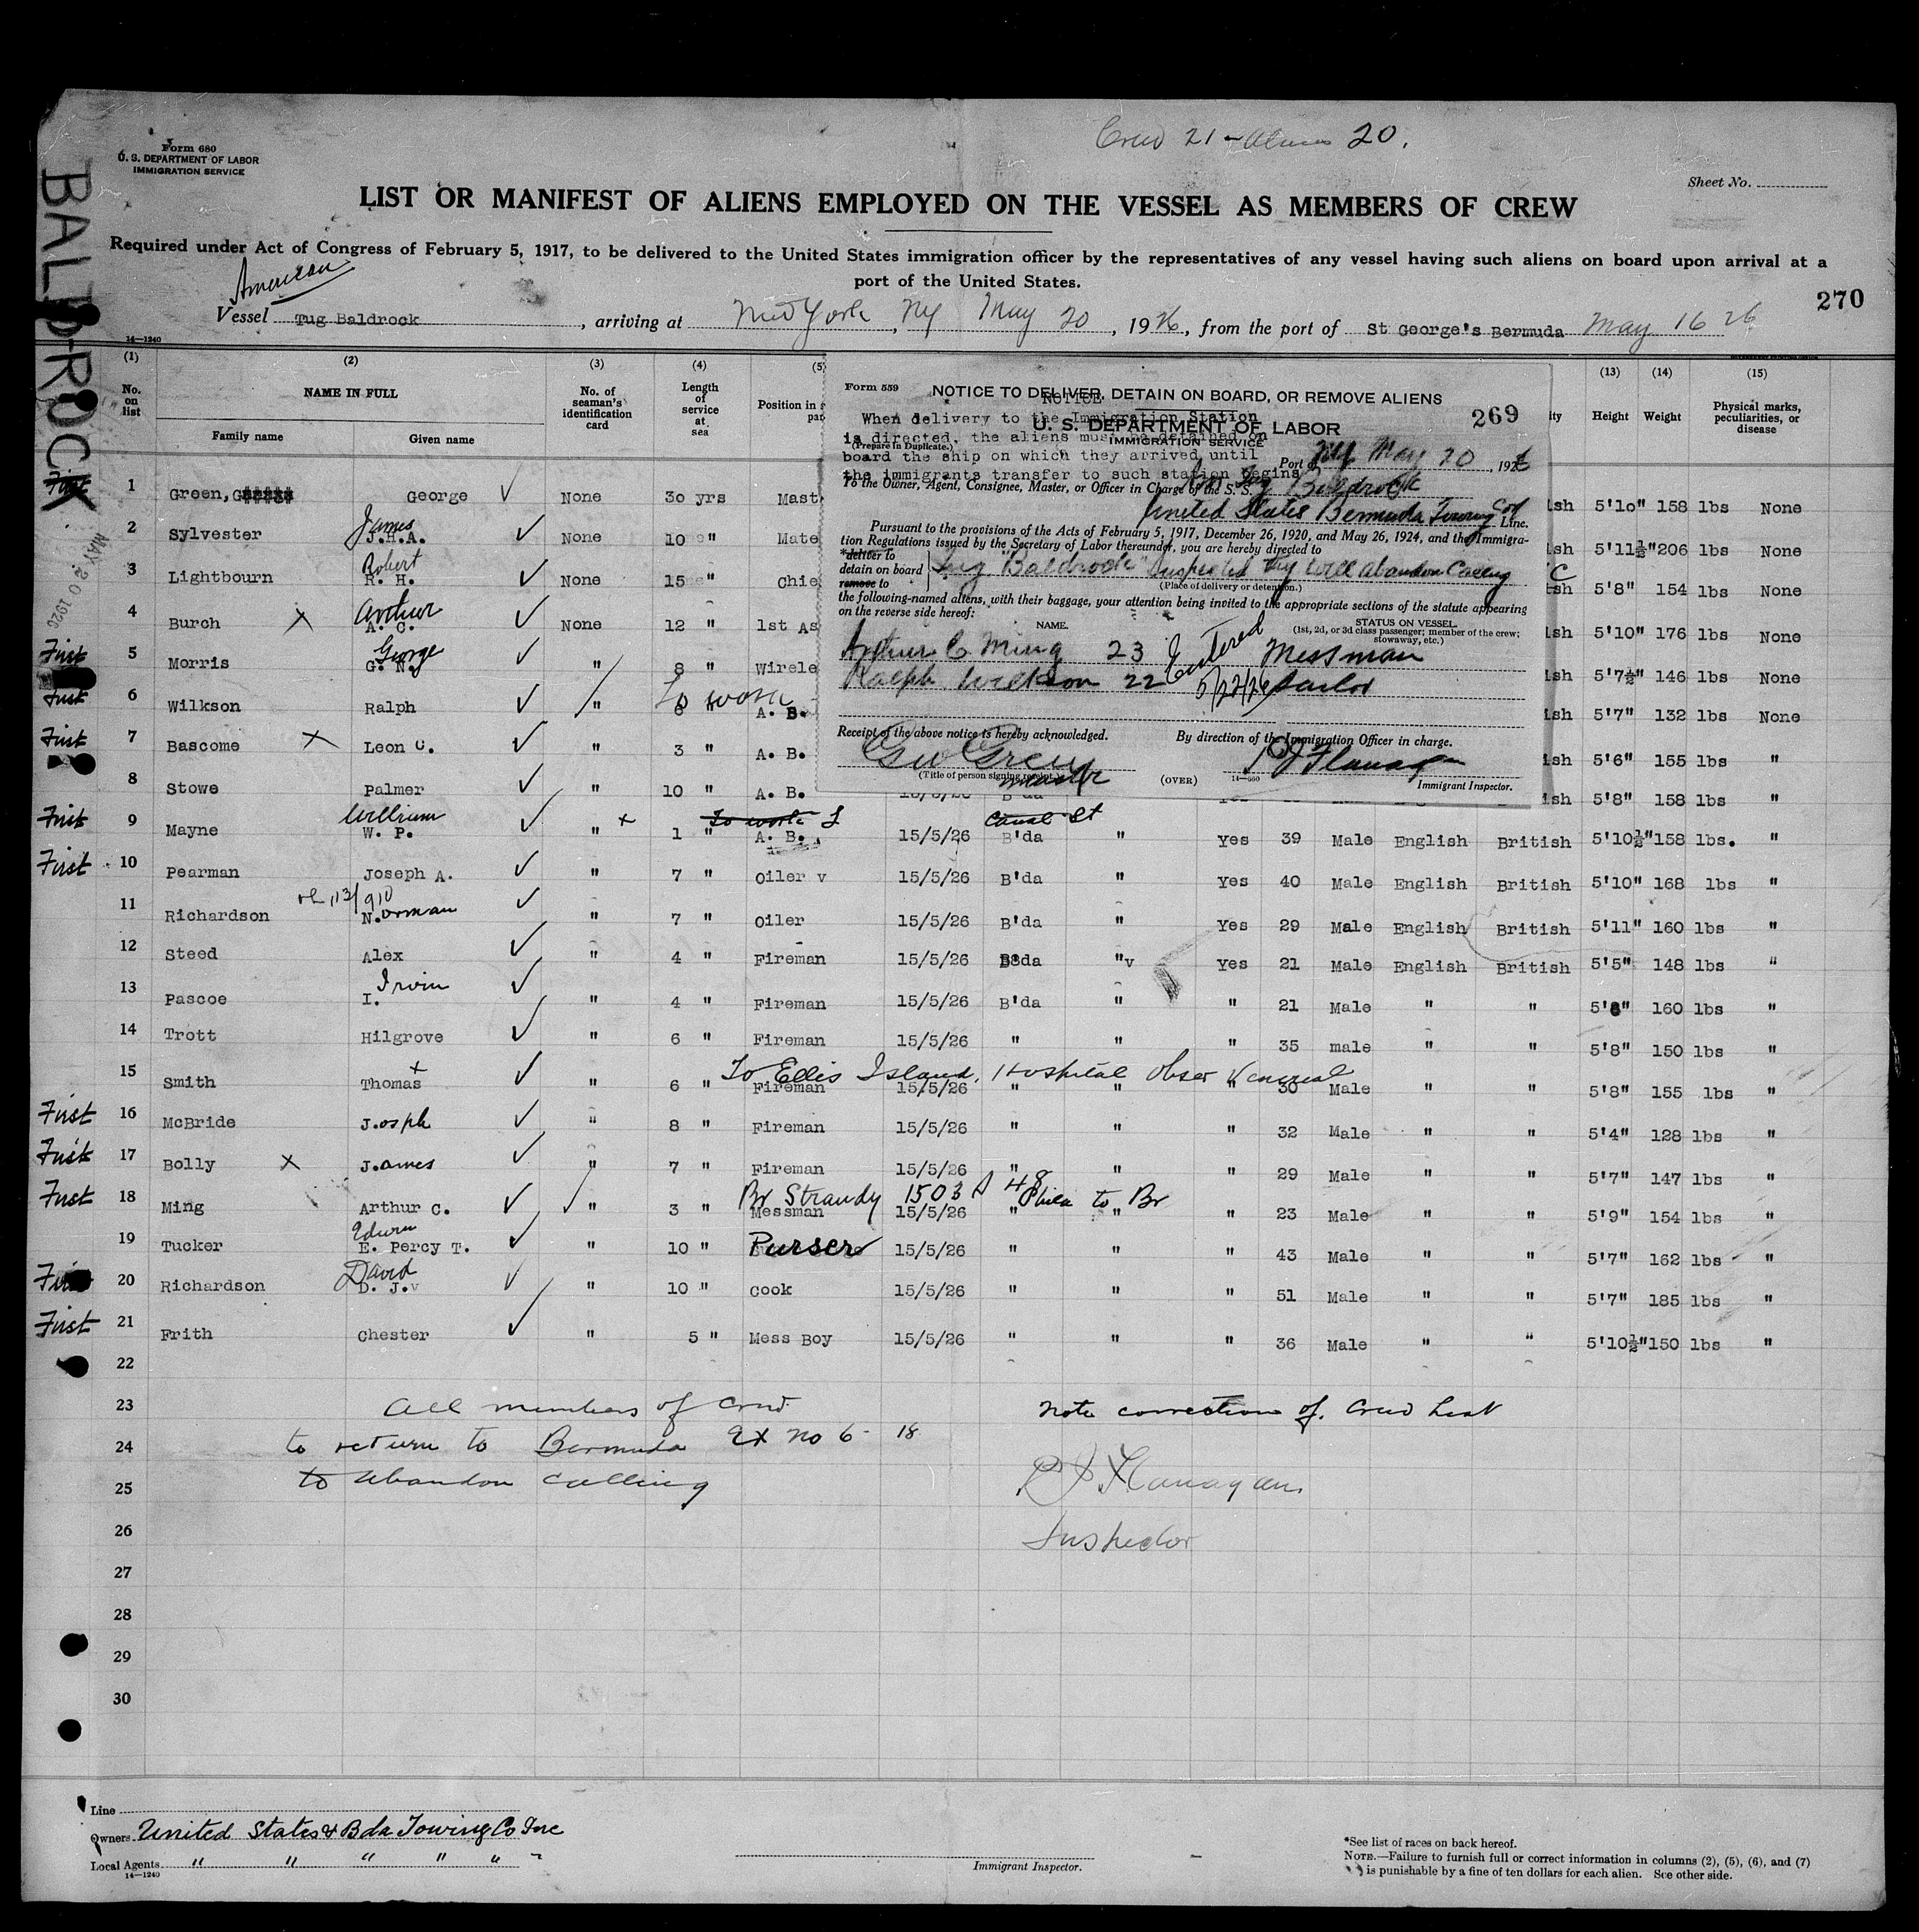 Crew 21 - Aliens 20.
Form 680
U. S. DEPARTMENT OF LABOR
IMMIGRATION SERVICE
Sheet No.
BALDROCK
LIST OR MANIFEST OF ALIENS EMPLOYED ON THE VESSEL AS MEMBERS OF CREW
Required under Act of Congress of February 5, 1917, to be delivered to the United States immigration officer by the representatives of any vessel having such aliens on board upon arrival at a
port of the United States.
American
270
Vessel Tug Baldrock, arriving at New York, Ny May 20, 1926, from the port of St George's Bermuda May 16 26
14—1240
(1) (2) (3) (4) (5) (13) (14) (15)
No. on list NAME IN FULL No. of seaman's identification card Length of service at sea Position in Height Weight Physical marks, peculiarities, or disease
Family name Given name
MAY 20 1926
Form 559 NOTICE TO DELIVER, DETAIN ON BOARD, OR REMOVE ALIENS
NOTICE
269
When delivery to the Immigration Station
U. S. DEPARTMENT OF LABOR
is directed, the aliens must be detained on
(Prepare in Duplicate.) IMMIGRATION SERVICE
board the ship on which they arrived until
Port of NY May 20, 1926
the immigrants transfer to such station begins
To the Owner, Agent, Consignee, Master, or Officer in Charge of the S. S. Tug Baldrock
United States Bermuda Towing Cor Line.
Pursuant to the provisions of the Acts of February 5, 1917, December 26, 1920, and May 26, 1924, and the Immigra-
tion Regulations issued by the Secretary of Labor thereunder, you are hereby directed to
*deliver to
detain on board Tug "Baldrock" Suspected they will abandon Calling
remove to (Place of delivery or detention.)
the following-named aliens, with their baggage, your attention being invited to the appropriate sections of the statute appearing
on the reverse side hereof:
NAME. STATUS ON VESSEL.
(1st, 2d, or 3d class passenger; member of the crew; stowaway, etc.)
Arthur C Ming 23 Entered Messman
Ralph Wilkson 22 5/22/26 Sailor
Receipt of the above notice is hereby acknowledged. By direction of the Immigration Officer in charge.
Geo Green Flanagan
(Title of person signing receipt.) master (OVER) Immigrant Inspector.
First 1 Green, George None 30 yrs Mast ish 5'10" 158 lbs None
2 Sylvester James J.H.A. None 10 " Mate ish 5'11½" 206 lbs None
3 Lightbourn Robert R. H. None 15 " Chie ish 5'8" 154 lbs None
4 Burch X Arthur A. C. None 12 " 1st As ish 5'10" 176 lbs None
First 5 Morris George G. N. " 8 " Wirele ish 5'7½" 146 lbs None
First 6 Wilkson Ralph " 6 " To work A. B. ish 5'7" 132 lbs None
First 7 Bascome X Leon C. " 3 " A. B. ish 5'6" 155 lbs "
8 Stowe Palmer " 10 " A. B. ish 5'8" 158 lbs "
First 9 Mayne William W. P. " x 1 " To work A. B. 15/5/26 Canal St B'da " Yes 39 Male English British 5'10½" 158 lbs. "
First 10 Pearman Joseph A. " 7 " Oiler v 15/5/26 B'da " Yes 40 Male English British 5'10" 168 lbs "
11 Richardson N.orman " 7 " Oiler 15/5/26 B'da " Yes 29 Male English British 5'11" 160 lbs "
12 Steed Alex " 4 " Fireman 15/5/26 B'da "v Yes 21 Male English British 5'5" 148 lbs "
13 Pascoe Irvin I. " 4 " Fireman 15/5/26 B'da " " 21 Male " " 5'8" 160 lbs "
14 Trott Hilgrove " 6 " Fireman 15/5/26 " " " 35 male " " 5'8" 150 lbs "
To Ellis Island, Hospital Obser Venereal
15 Smith Thomas x " 6 " Fireman 15/5/26 " " " 30 Male " " 5'8" 155 lbs "
First 16 McBride J.osph " 8 " Fireman 15/5/26 " " " 32 Male " " 5'4" 128 lbs "
First 17 Bolly X J.ames " 7 " Fireman 15/5/26 " " " 29 Male " " 5'7" 147 lbs "
Br Strandy 1503 48 Phila to Br
First 18 Ming Arthur C. " 3 " Messman 15/5/26 " " " 23 Male " " 5'9" 154 lbs "
19 Tucker Edwin E. Percy T. " 10 " Purser 15/5/26 " " " 43 Male " " 5'7" 162 lbs "
First 20 Richardson David D. J.v " 10 " Cook 15/5/26 " " " 51 Male " " 5'7" 185 lbs "
First 21 Frith Chester " 5 " Mess Boy 15/5/26 " " " 36 Male " " 5'10½" 150 lbs "
22
23 All members of Crew Note correction of Crew List
24 to return to Bermuda Ex no 6 - 18
25 to abandon calling Flanagan.
26 Inspector
27
28
29
30
Line
Owners United States & Bda Towing Co Inc
Local Agents " " " " " "
14—1240
Immigrant Inspector.
*See list of races on back hereof.
NOTE.—Failure to furnish full or correct information in columns (2), (5), (6), and (7)
is punishable by a fine of ten dollars for each alien. See other side.